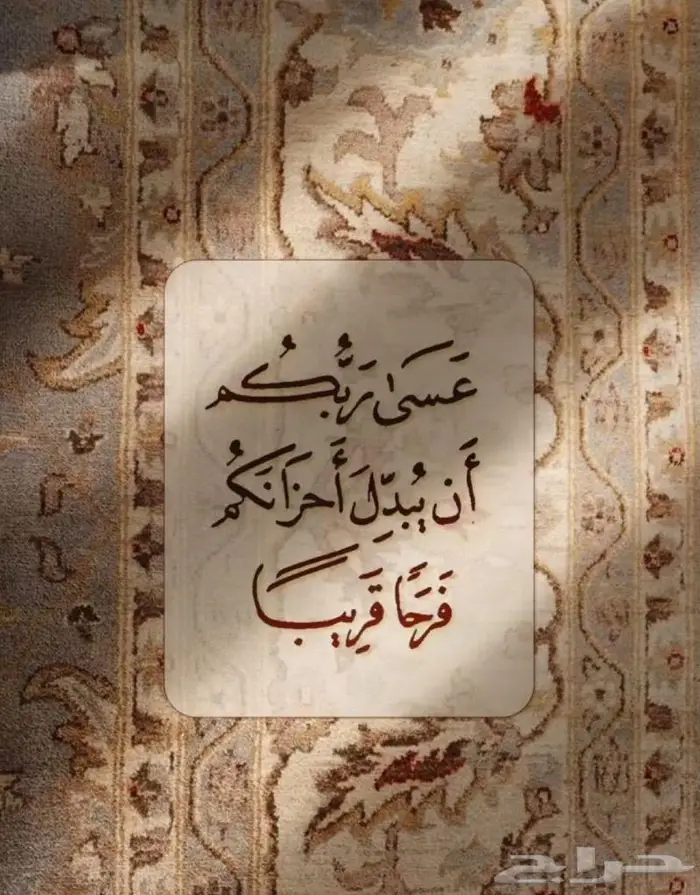 عَسَىٰ رَبُّكُم
أَن يُبدِّلَ أَحزَانَكُم
فَرَحًا قَرِيبًا
حراج